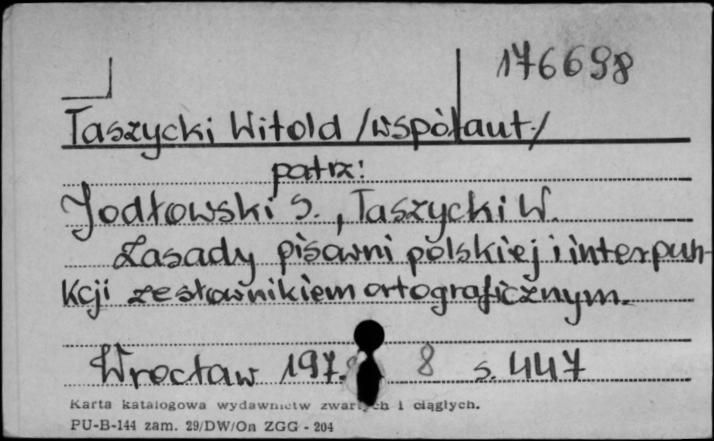 176698
Taszycki Witold /współaut./
patrz:
Jodłowski S., Taszycki W.
Zasady pisowni polskiej i interpun-
kcji ze słownikiem ortograficznym.
Wrocław 197 8 s. 447
Karta katalogowa wydawnictw zwartych i ciągłych.
PU-B-144 zam. 29/DW/On ZGG - 204